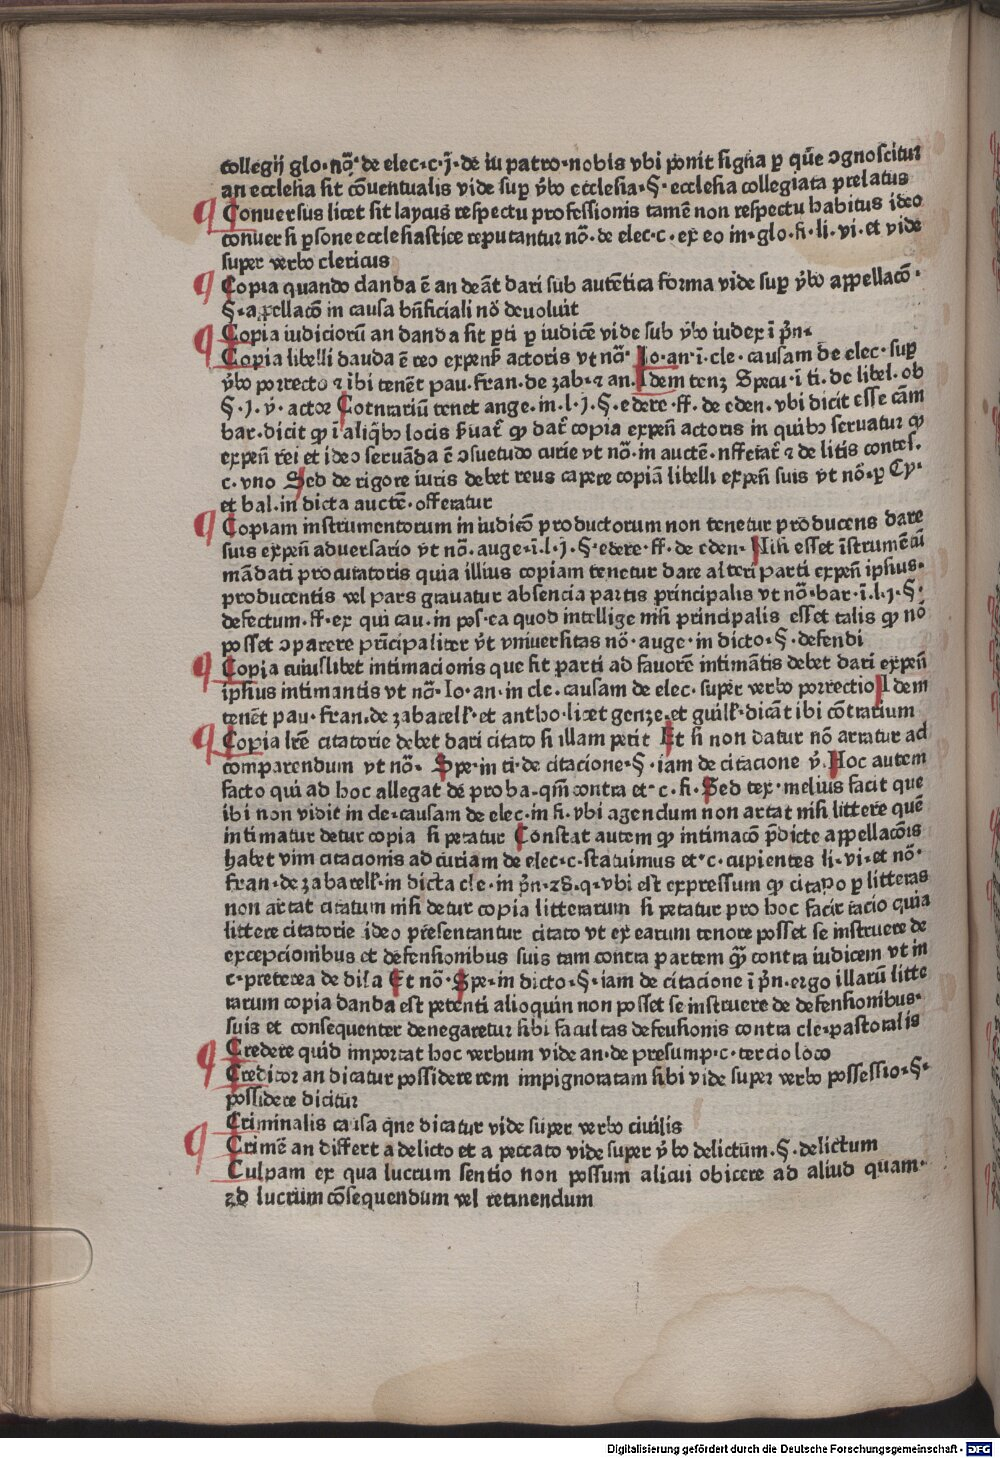 collegij glo·nō·de elec·c·j̄·de iu patro·nobis vbi ponit signa ꝑ que ↄgnoscitur
an ecclesia sit cōuentualis vide suꝑ v̄bo ecclesia·§·ecclesia collegiata prelatus
Conuersus licet sit laycus respectu professionis tamē non respectu habitus ideo
conuersi ꝑsone ecclesiastice reputantur nō·de elec·c·ex eo in·glo·fi·li·vi·et vide
super verbo clericus
Copia quando danda ē an deāt dari sub autētica forma vide suꝑ v̄bo appellacō·
§·appellacō in causa bn̄ficiali nō deuoluit
Copia iudiciorū an danda sit ꝑti ꝑ iudicē vide sub v̄bo iudex ī pn̄·
Copia libelli dauda ē reo expenẜ actoris vt nō· Io·an·ī·cle·causam de elec·suꝑ
v̄bo porrecto ⁊ ibi tenēt pau·fran·de zab·⁊ an·Idem tenꝫ Specu·ī ti·de libel·ob
§·j·v̄·actor Cotnrariū tenet ange·in·l·j·§·edere·ff·de eden·vbi dicit esse cām
bar·dicit ꝙ ī aliq̄bꝫ locis ẜuat̄ ꝙ dat̄ copia expen̄ actoris in quibꝫ seruatur ꝙ
expen̄ rei et ideo seruāda ē ↄsuetudo curie vt nō·in auctē·nfferat̄ ⁊ de litis contes̄·
c·vno Sed de rigore iuris debet reus capere copiā libelli expen̄ suis vt nō·ꝑ Cy·
et bal·in dicta auctē·offeratur
Copiam instrumentorum in iudicō productorum non tenetur producens dare
suis expen̄ aduersario vt nō·auge·ī·l·j·§·edere·ff·de eden·Nisi esset īstrumētū
mādati procuratoris quia illius copiam tenetur dare alteri parti expen̄ ipsius·
producentis vel pars grauatur absencia partis principalis vt nō·bar·ī·l·j·§·
defectum·ff·ex qui cau·in pos·ea quod intellige nisi principalis esset talis ꝙ nō
posset ↄparere prīcipaliter vt vniuersitas nō·auge·in dicto·§·defendi
Copia cuiuslibet intimacionis que fit parti ad fauorē intimātis debet dari expen̄
ipsius intimantis vt nō·Io·an·in cle·causam de elec·super verbo porrectio Idem
tenēt pau·fran·de zabarelꝉ·et antho·licet genze·et guilꝉ·dicāt ibi cōtrarium
Copia lr̄e citatorie debet dari citato si illam petit Et si non datur nō artatur ad
comparendum vt nō· Spe·in ti·de citacione·§·iam de citacione v̄·Hoc autem
facto qui ad hoc allegat de proba·qm̄ contra et·c·fi·Sed tex·melius facit que
ibi non vidit in cle·causam de elec·in fi·vbi agendum non artat nisi littere quē
intimatur detur copia si petatur Constat autem ꝙ intimacō p̄dicte appellacōis
habet vim citacionis ad curiam de elec·c·statuimus et·c·cupientes li·vi·et nō·
fran·de zabarelꝉ·in dicta cle·in pn̄·28·q·vbi est expressum ꝙ citapo ꝑ litteras
non artat citatum nisi detur copia litterarum si petatur pro hoc facit racio quia
littere citatorie ideo presentantur citato vt ex earum tenore posset se instruere de
excepcionibus et defensionibus suis tam contra partem ꝙ̄ contra iudicem vt in
c·preterea de dila Et nō·Spe·in dicto·§·iam de citacione ī pn̄·ergo illarū litte
rarum copia danda est petenti alioquin non posset se instruere de defensionibus·
suis et consequenter denegaretur sibi facultas defeusionis contra cle·pastoralis
Credere quid importat hoc verbum vide an·de presump·c·tercio loco
Creditor an dicatur possidere rem impignoratam sibi vide super verbo possessio·§·
possidere dicitur
Criminalis causa qne dicatur vide super verbo ciuilis
Crimē an differt a delicto et a peccato vide super v̄bo delictum·§·delictum
Culpam ex qua lucrum sentio non possum alicui obicere ad aliud quam·
ad lucrum cōsequendum vel retinendum
Digitalisierung gefördert durch die Deutsche Forschungsgemeinschaft - DFG